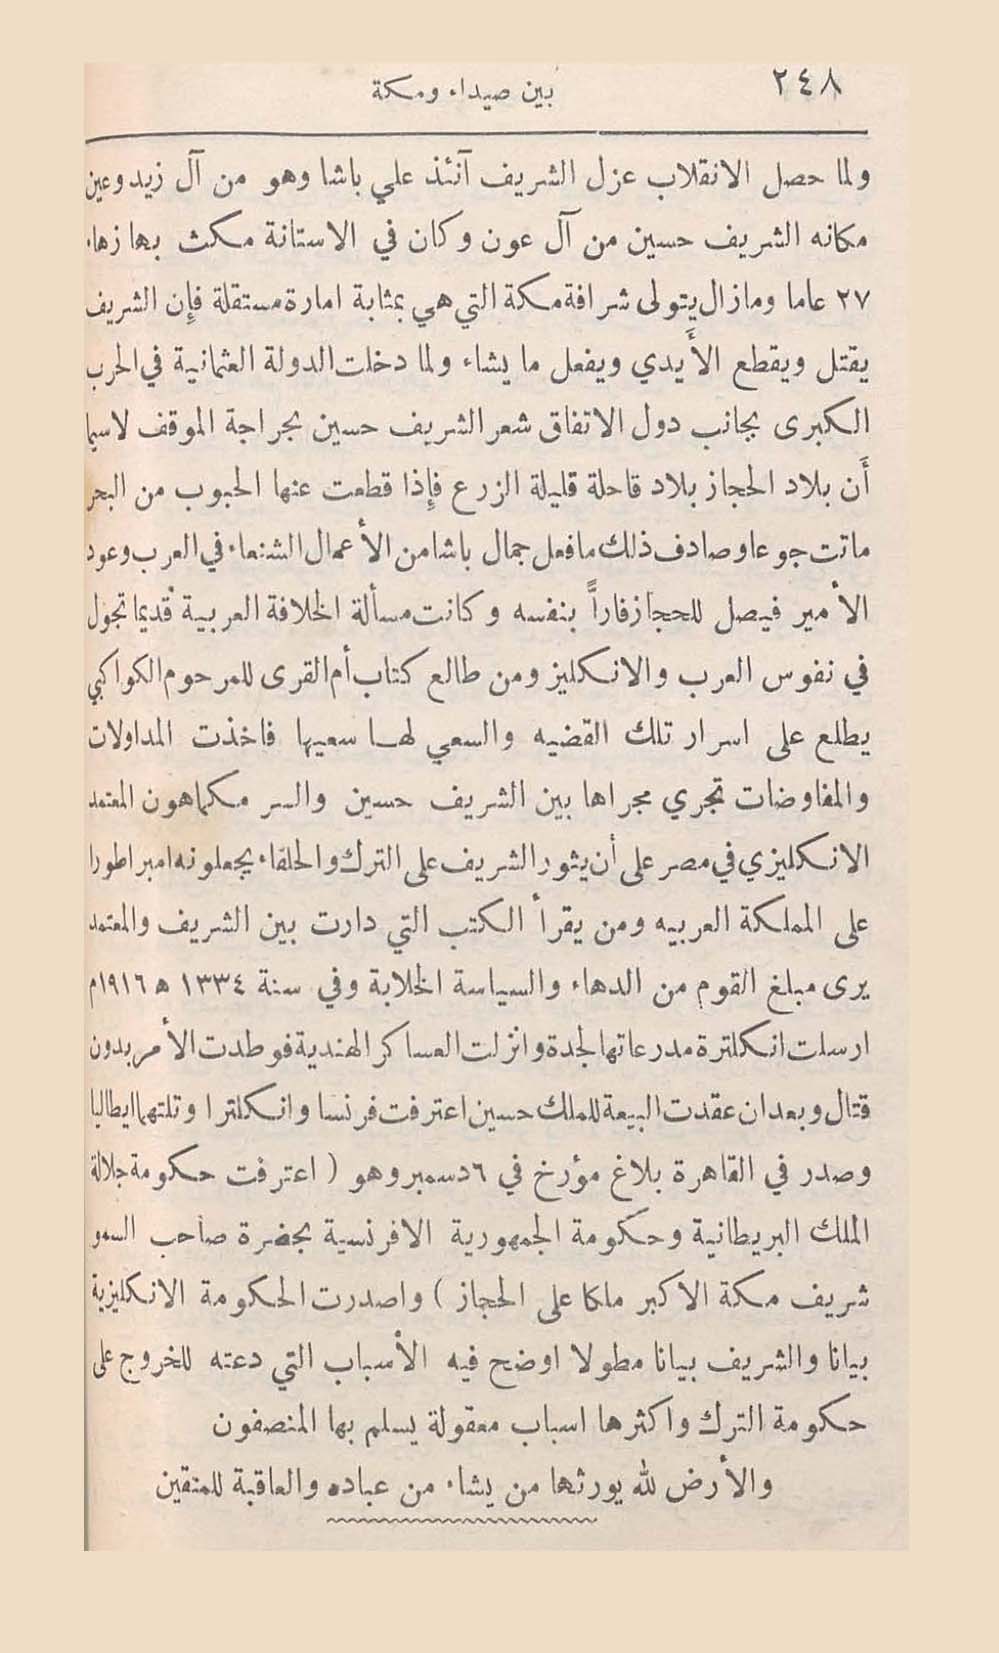 ٢٤٨
بين صيداء ومكة
ولما حصل الانقلاب عزل الشريف آنئذ علي باشا وهو من آل زيد وعين
مكانه الشريف حسين من آل عون وكان في الاستانة مكث بها زهاء
٢٧ عاما ومازال يتولى شرافة مكة التي هي بمثابة امارة مستقلة فإن الشريف
يقتل ويقطع الأَيدي ويفعل ما يشاء ولما دخلت الدولة العثمانية في الحرب
الكبرى بجانب دول الاتفاق شعر الشريف حسين بجراجة الموقف لاسيما
أَن بلاد الحجاز بلاد قاحلة قليلة الزرع فإذا قطعت عنها الحبوب من البحر
ماتت جوعا وصادف ذلك مافعل جمال باشا من الأعمال الشنعاء في العرب وعود
الأمير فيصل للحجاز فاراً بنفسه وكانت مسألة الخلافة العربية قديما تجول
في نفوس العرب والانكليز ومن طالع كتاب أم القرى للمرحوم الكواكبي
يطلع على اسرار تلك القضيه والسعي لهـا سعيها فاخذت المداولات
والمفاوضات تجري مجراها بين الشريف حسين والسر مكماهون المعتمد
الانكليزي في مصر على أن يثور الشريف على الترك والحلفاء يجعلونه امبراطورا
على المملكة العربيه ومن يقرأ الكتب التي دارت بين الشريف والمعتمد
يرى مبلغ القوم من الدهاء والسياسة الخلابة وفي سنة ١٣٣٤ ه ١٩١٦م
ارسلت انكلترة مدرعاتها لجدة وانزلت العساكر الهندية فوطدت الأمر بدون
قتال وبعد ان عقدت البيعة للملك حسين اعترفت فرنسا وانكلترا وتلتهما ايطاليا
وصدر في القاهرة بلاغ مؤرخ في ٦ دسمبر وهو ( اعترفت حكومة جلالة
الملك البريطانية وحكومة الجمهورية الافرنسية بحضرة صاحب السمو
شريف مكة الاكبر ملكا على الحجاز ) واصدرت الحكومة الانكليزية
بيانا والشريف بيانا مطولا اوضح فيه الأسباب التي دعته للخروج على
حكومة الترك واكثرها اسباب معقولة يسلم بها المنصفون
والأرض لله يورثها من يشاء من عباده والعاقبة للمتقين